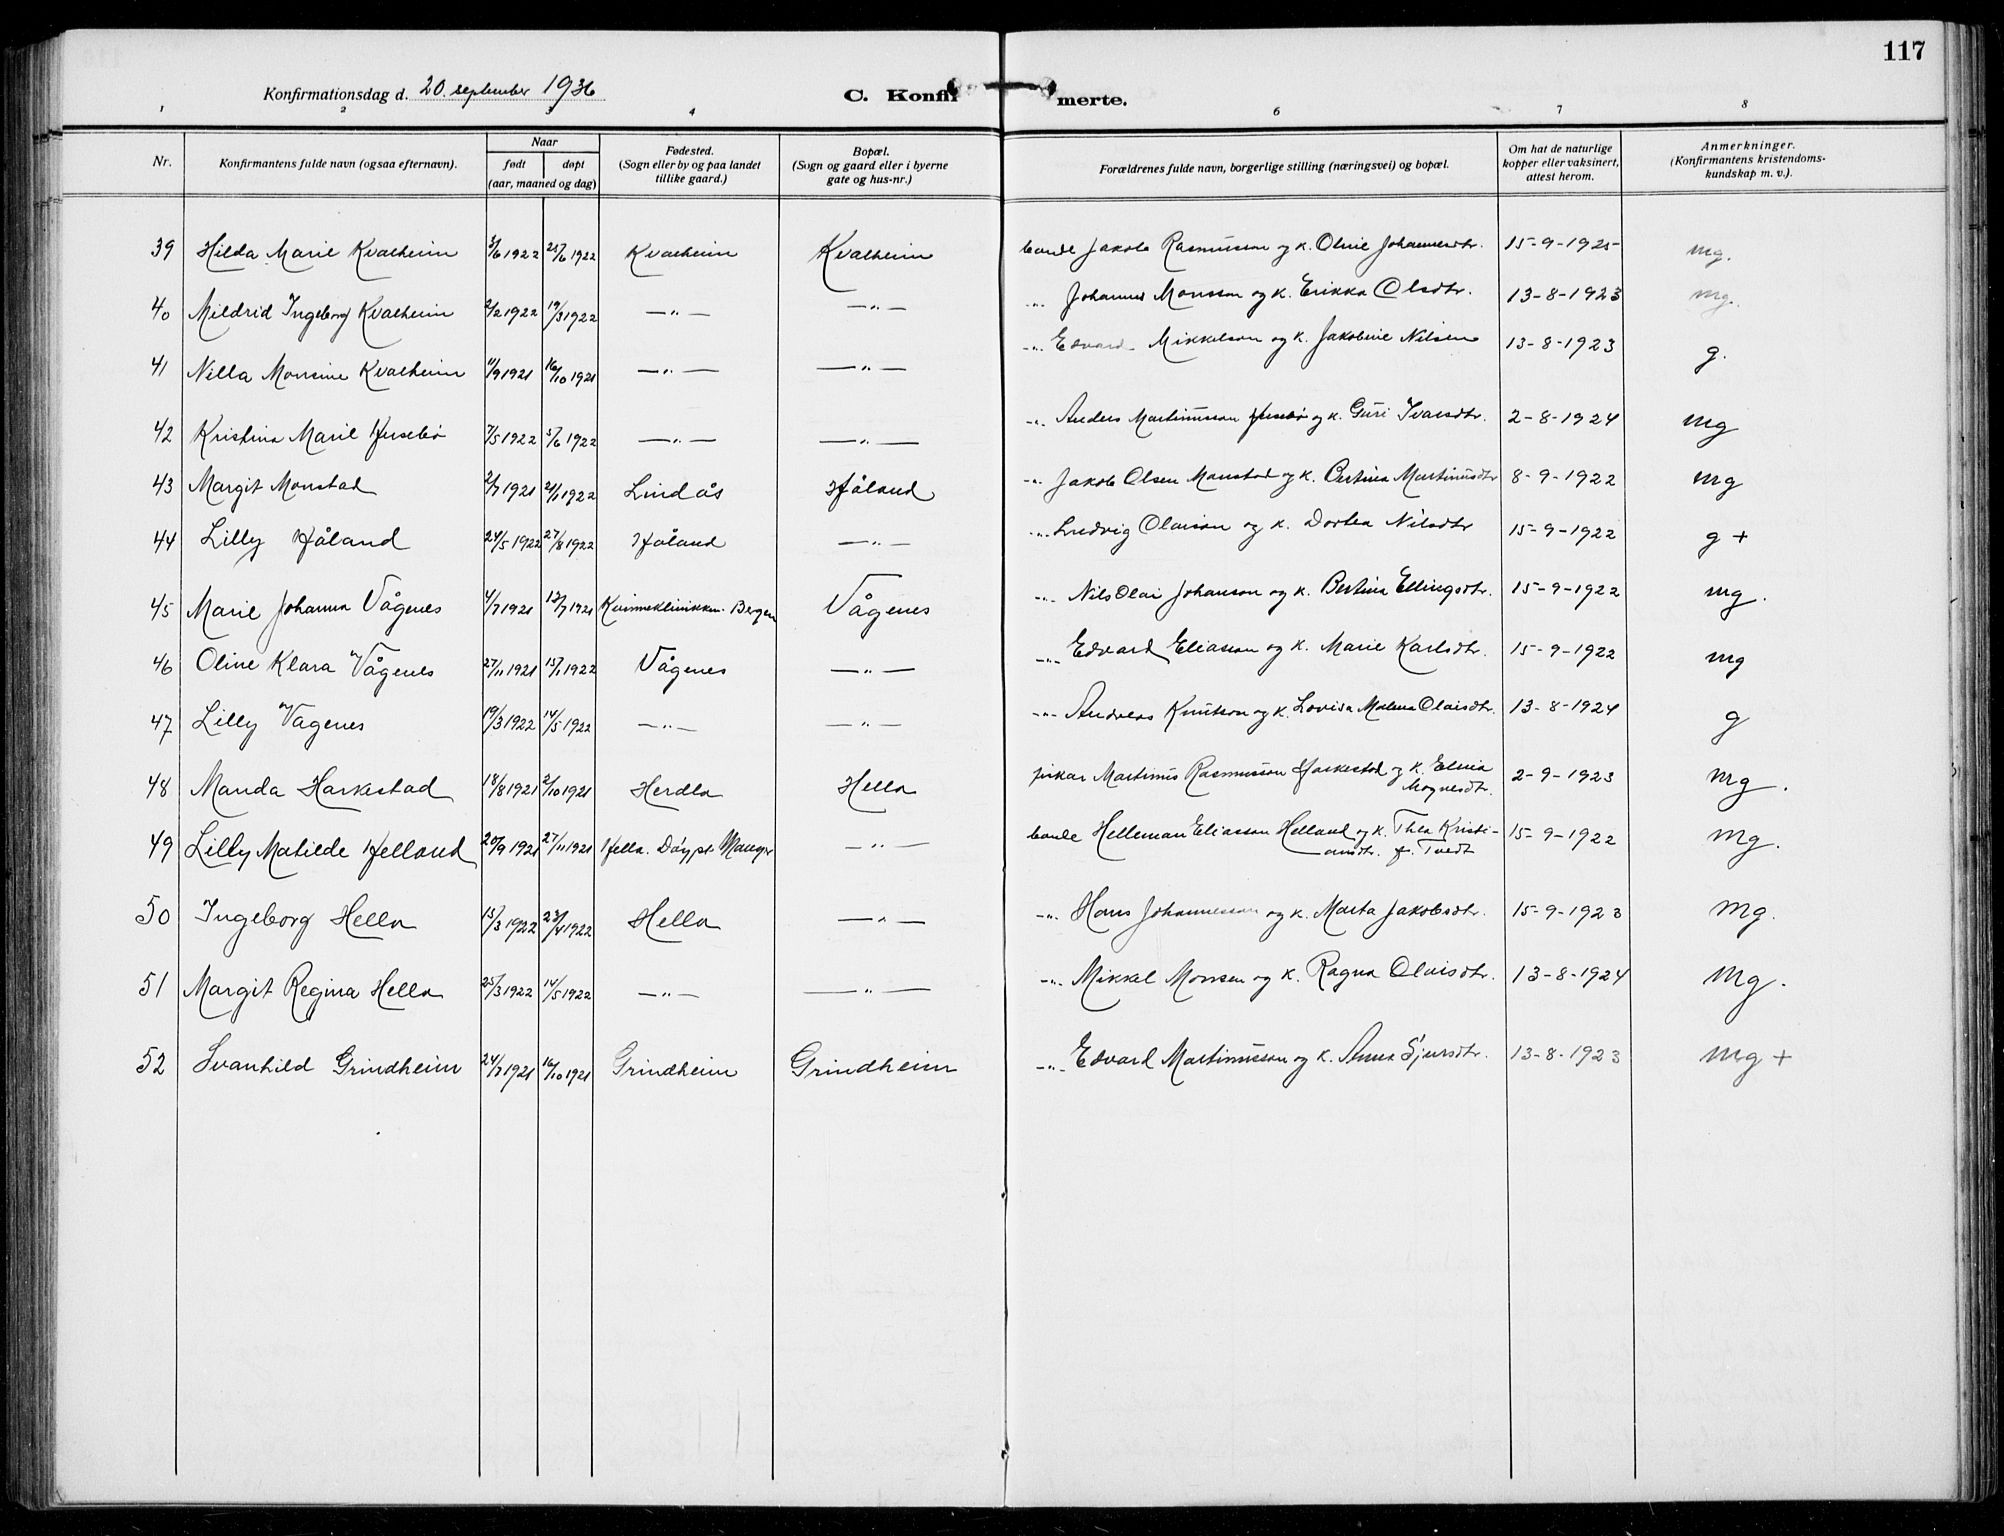 117
Konfirmationsdag d. 20. september 1936
C. Konfirmerte.
1 2 3 4 6 7 8
Nr. Konfirmantens fulde navn (ogsaa efternavn). Naar født døpt (aar, maaned og dag) Fødested. (Sogn eller by og paa landet tillike gaard.) Bopæl. (Sogn og gaard eller i byerne gate og hus-nr.) Forældrenes fulde navn, borgerlige stilling (næringsvei) og bopæl. Om hat de naturlige kopper eller vaksinert, attest herom. Anmerkninger. (Konfirmantens kristendoms-kundskap m. v.).
39 Hilda Marie Kvalheim 3/6 1922 25/6 1922 Kvalheim Kvalheim bonde Jakob Rasmusson og k. Oline Johannesdtr. 15-9-1925 mg.
40 Mildrid Ingeborg Kvalheim 2/2 1922 19/3 1922 —"— —"— —"— Johannes Monsson og k. Erikka Olsdtr. 13-8-1923 mg.
41 Nilla Monsine Kvalheim 11/9 1921 16/10 1921 —"— —"— —"— Edvard Mikkelson og k. Jakobine Nilsen 13-8-1923 g.
42 Kristina Marie Husebø 7/5 1922 5/6 1922 —"— —"— —"— Anders Martinusson Husebø og k. Guri Ivarsdtr. 2-8-1924 mg
43 Margit Monstad 2/7 1921 24/1 1922 Lindås Håland —"— Jakob Olsen Monstad og k. Bertina Martinusdtr 8-9-1922 mg
44 Lilly Håland 24/5 1922 27/8 1922 Håland —"— —"— Ludvig Olaison og k. Dortea Nilsdtr 15-9-1922 g +
45 Marie Johanna Vågenes 4/7 1921 12/7 1921 Kvinneklinikken. Bergen Vågenes —"— Nils Olai Johanson og k. Bertina Ellingsdtr. 15-9-1922 mg.
46 Oline Klara Vågenes 27/11 1921 15/1 1922 Vågenes —"— —"— Edvard Eliasson og k. Marie Karlsdtr. 15-9-1922 mg
47 Lilly Vågenes 19/3 1922 14/5 1922 —"— —"— —"— Andreas Knutson og k. Lovisa Malena Olaisdtr. 13-8-1924 g
48 Manda Harkestad 18/8 1921 2/10 1921 Herdla Hella fiskar Martinus Rasmusson Harkestad og k. Elina Mognesdtr. 2-9-1923 mg.
49 Lilly Matilde Helland 20/9 1921 27/11 1921 Hella. Døypt Manger —"— bonde Helleman Eliasson Helland og k. Thea Kristi-
ansdtr. f. Tvedt 15-9-1922 mg.
50 Ingeborg Hella 15/3 1922 23/4 1922 Hella —"— —"— Hans Johannesson og k. Marta Jakobsdtr. 15-9-1923 mg.
51 Margit Regina Hella 25/3 1922 14/5 1922 —"— —"— —"— Mikkel Monsen og k. Ragna Olaisdtr. 13-8-1924 mg.
52 Svanhild Grindheim 24/7 1921 16/10 1921 Grindheim Grindheim —"— Edvard Martinusson og k. Anna Sjursdtr. 13-8-1923 mg +